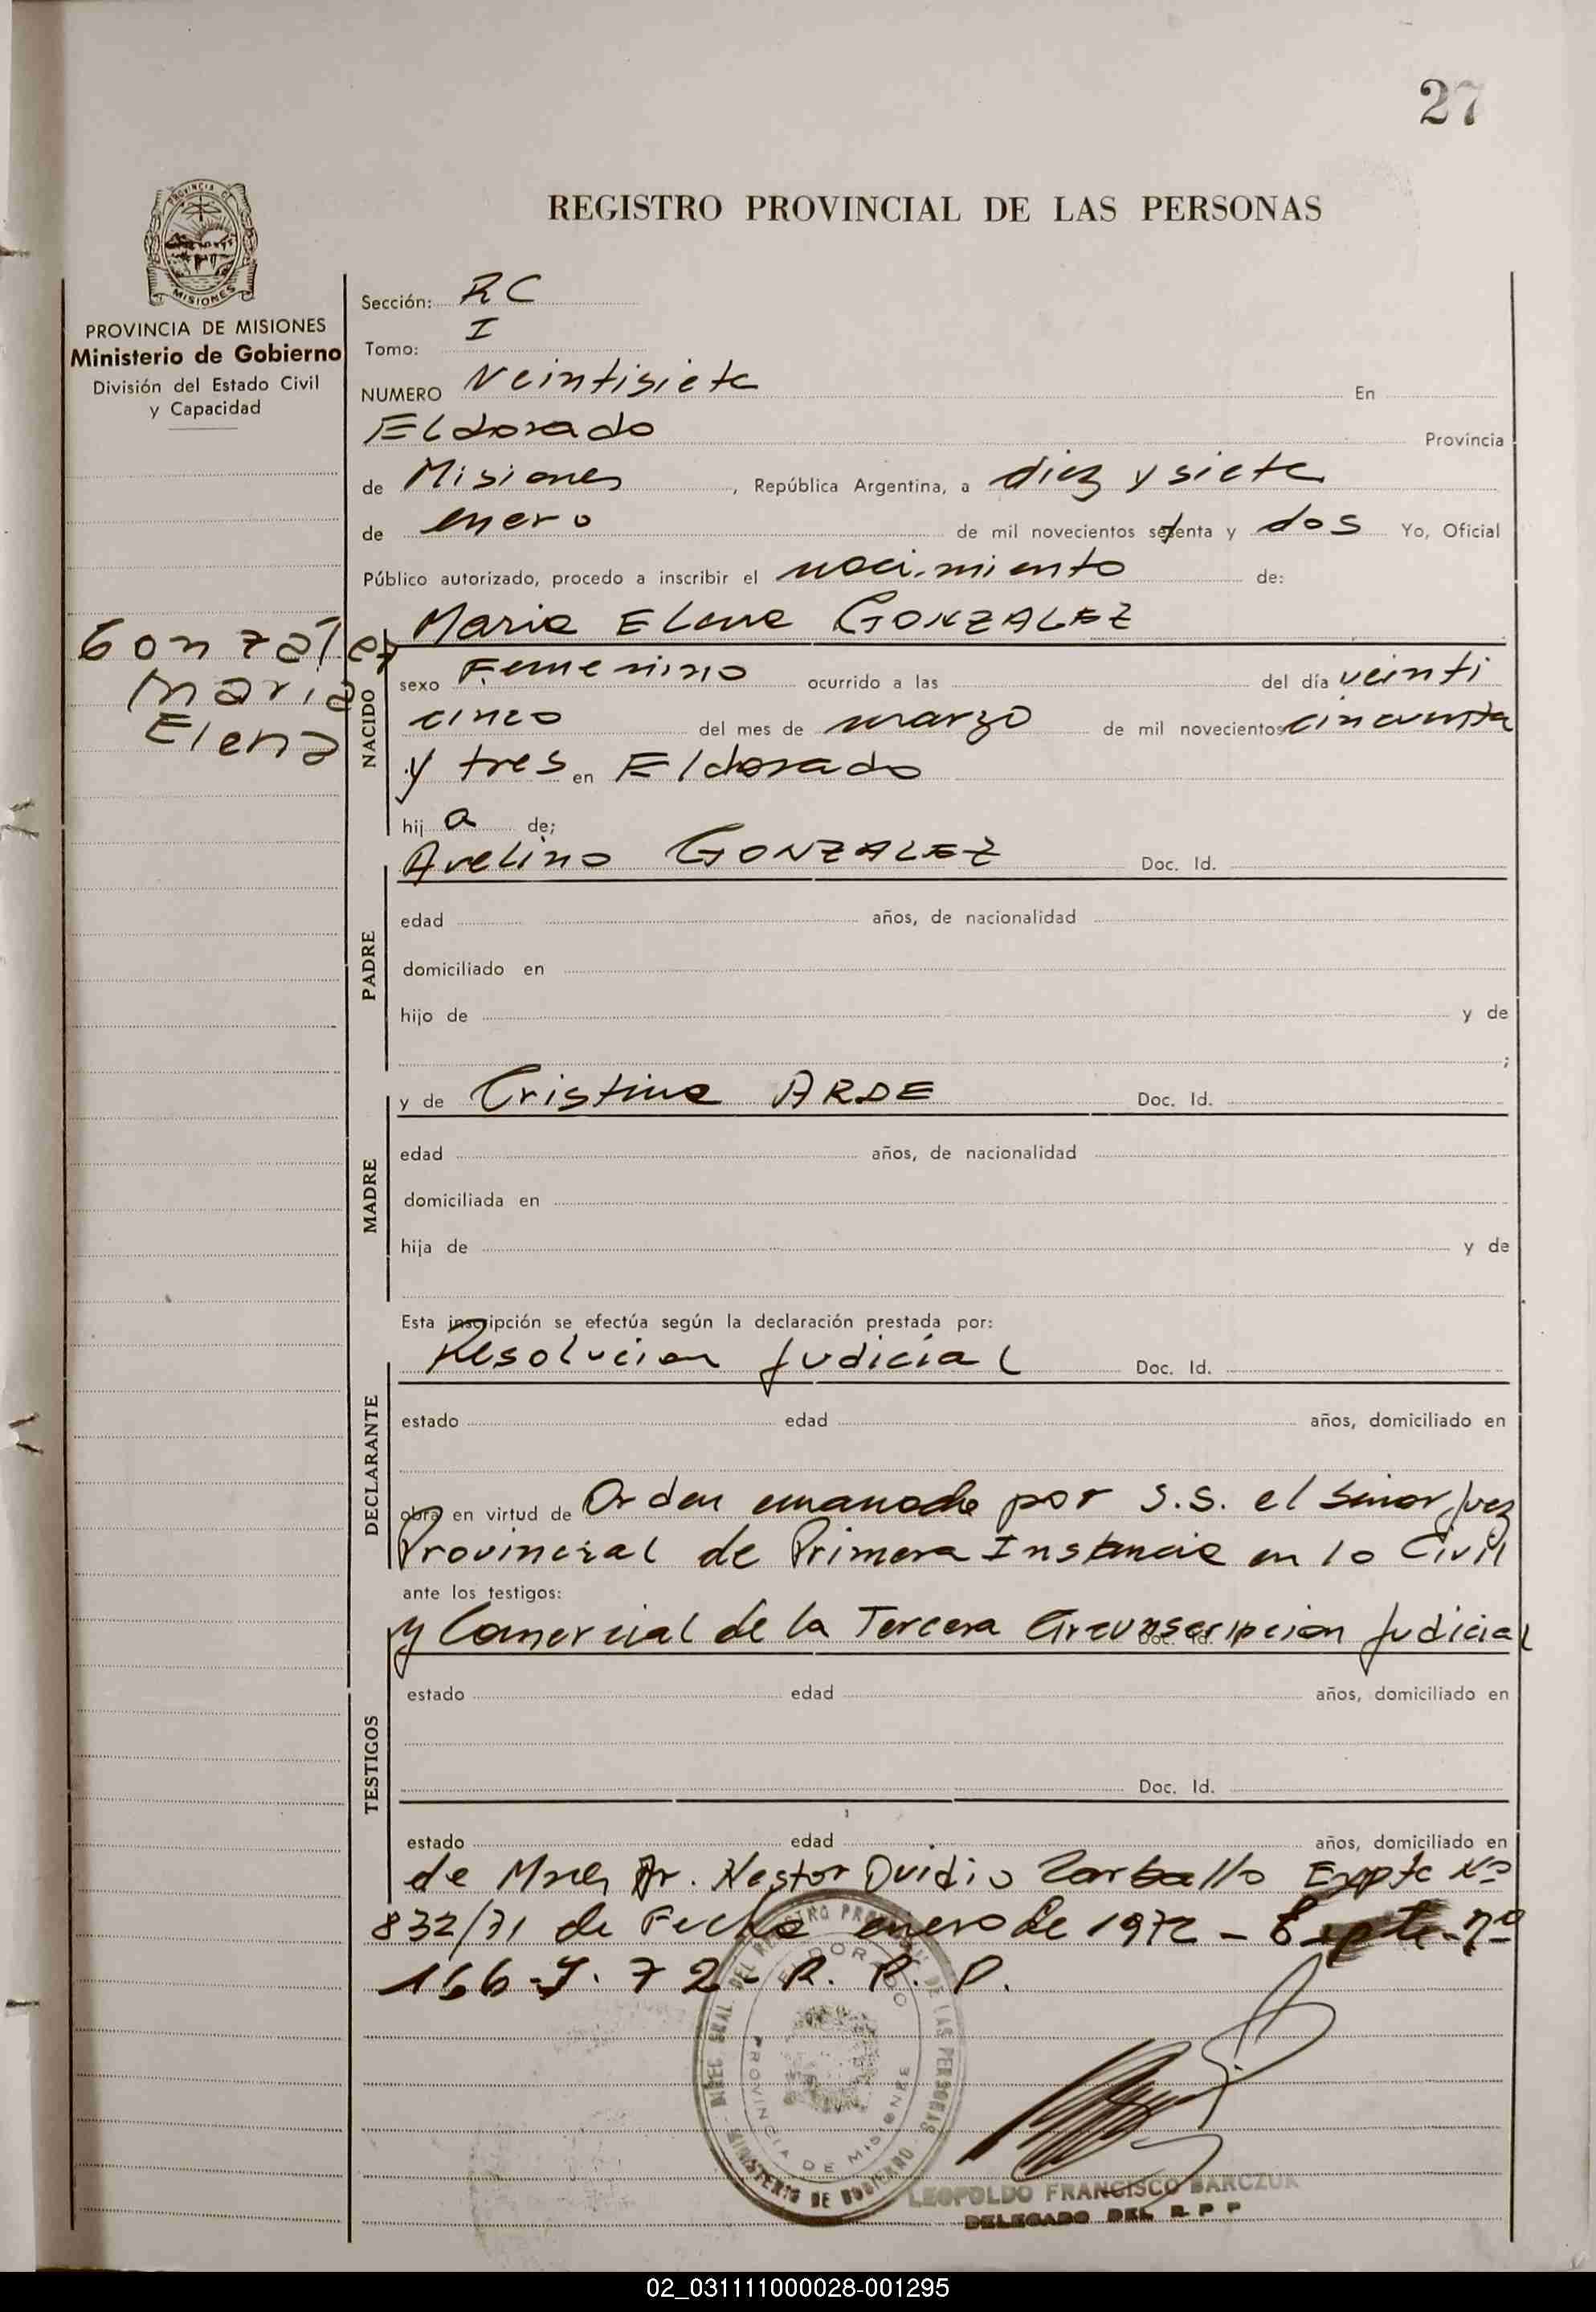 27
PROVINCIA DE MISIONES
REGISTRO PROVINCIAL DE LAS PERSONAS
PROVINCIA DE MISIONES
Ministerio de Gobierno
División del Estado Civil
y Capacidad
Sección: RC
Tomo: I
NUMERO Veintisiete En
Eldorado Provincia
de Misiones, República Argentina, a diez y siete
de enero de mil novecientos setenta y dos Yo, Oficial
Público autorizado, procedo a inscribir el nacimiento de:
Maria Elena GONZALEZ
González
Maria
Elena
NACIDO
sexo Femenino ocurrido a las del día veinti
cinco del mes de marzo de mil novecientos cincuenta
y tres en Eldorado
hij a de;
Avelino GONZALEZ Doc. Id.
PADRE
edad años, de nacionalidad
domiciliado en
hijo de y de
;
y de Cristina ARDE Doc. Id.
MADRE
edad años, de nacionalidad
domiciliada en
hija de y de
Esta inscripción se efectúa según la declaración prestada por:
Resolucion Judicial Doc. Id.
DECLARANTE
estado edad años, domiciliado en
obra en virtud de Orden emanada por S.S. el Señor Juez
Provincial de Primera Instancia en lo Civil
ante los testigos:
y Comercial de la Tercera Circunscripcion Judicial
Doc. Id.
estado edad años, domiciliado en
TESTIGOS
Doc. Id.
estado edad años, domiciliado en
de Mnes Dr. Nestor Ovidio Carballo Expte Nº
832/71 de Fecha enero de 1972 - Expte. nº
166-J. 72- R. P. P.
DIREC. GRAL. DEL REGISTRO PROVINCIAL DE LAS PERSONAS
MINISTERIO DE GOBIERNO
ELDORADO
PROVINCIA DE MISIONES
LEOPOLDO FRANCISCO BARCZUK
DELEGADO DEL R P P
02_031111000028-001295